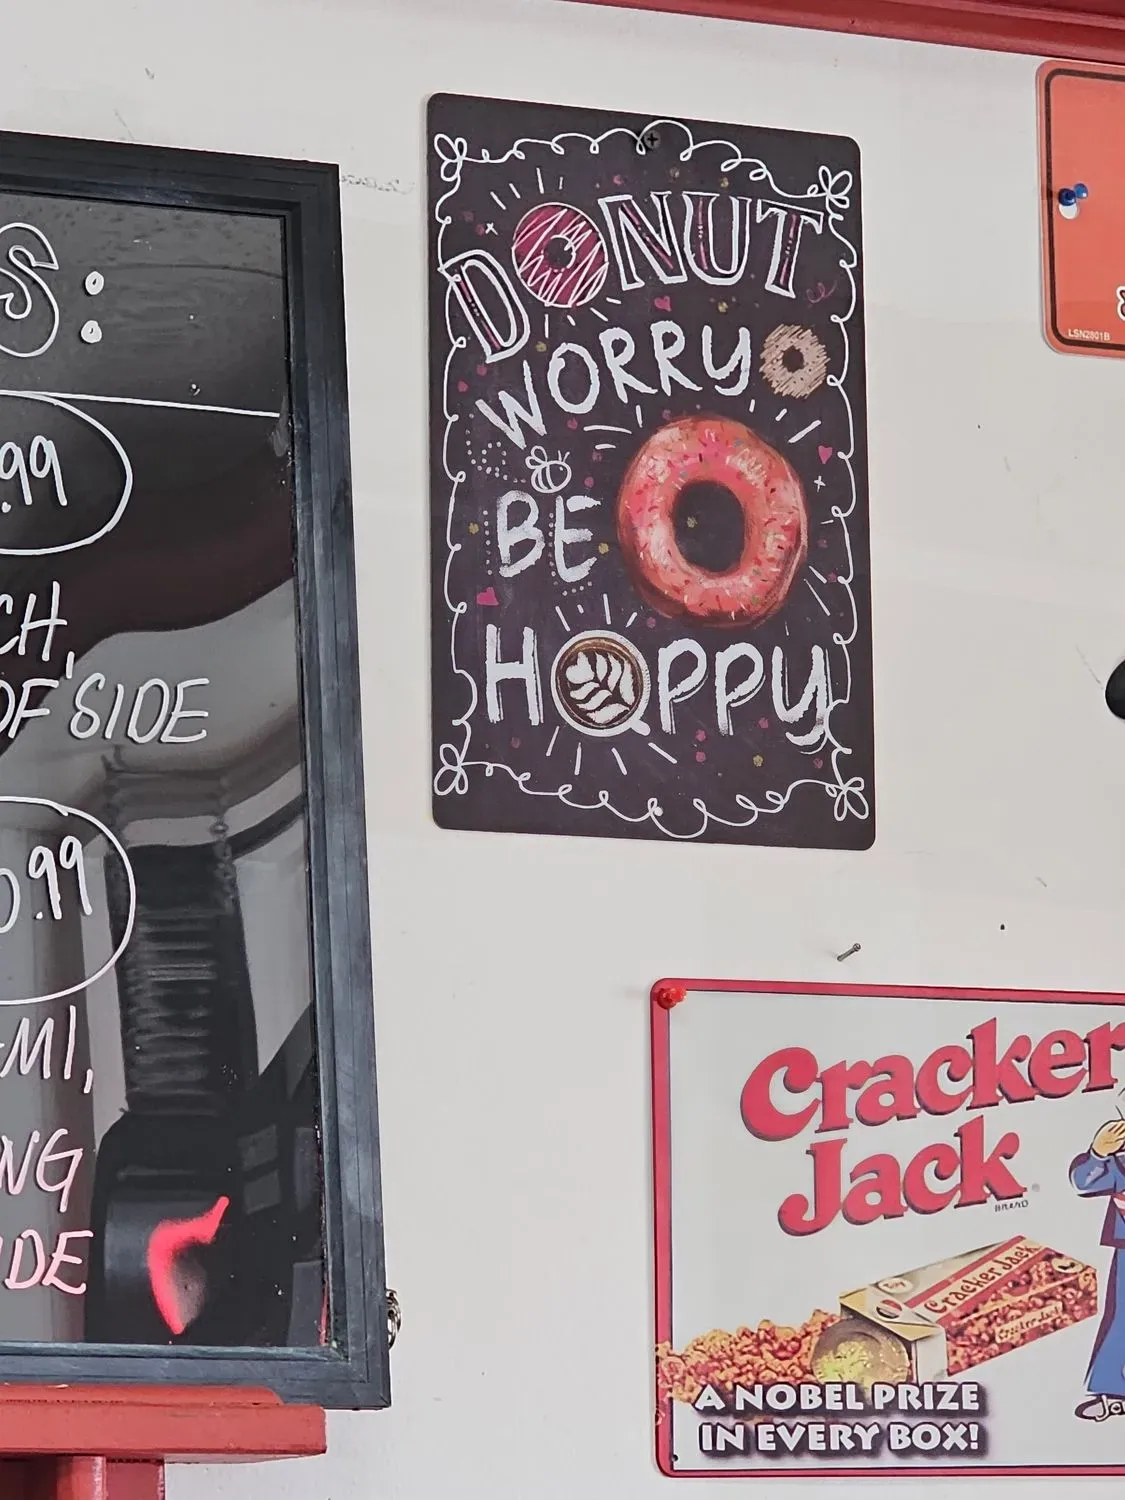 S:
.99
CH,
OF SIDE
0.99
EMI,
NG
IDE
DONUT
WORRY
BE
HAPPY
LSN2801B
Cracker
Jack®
BRAND
Cracker Jack
A NOBEL PRIZE
IN EVERY BOX!